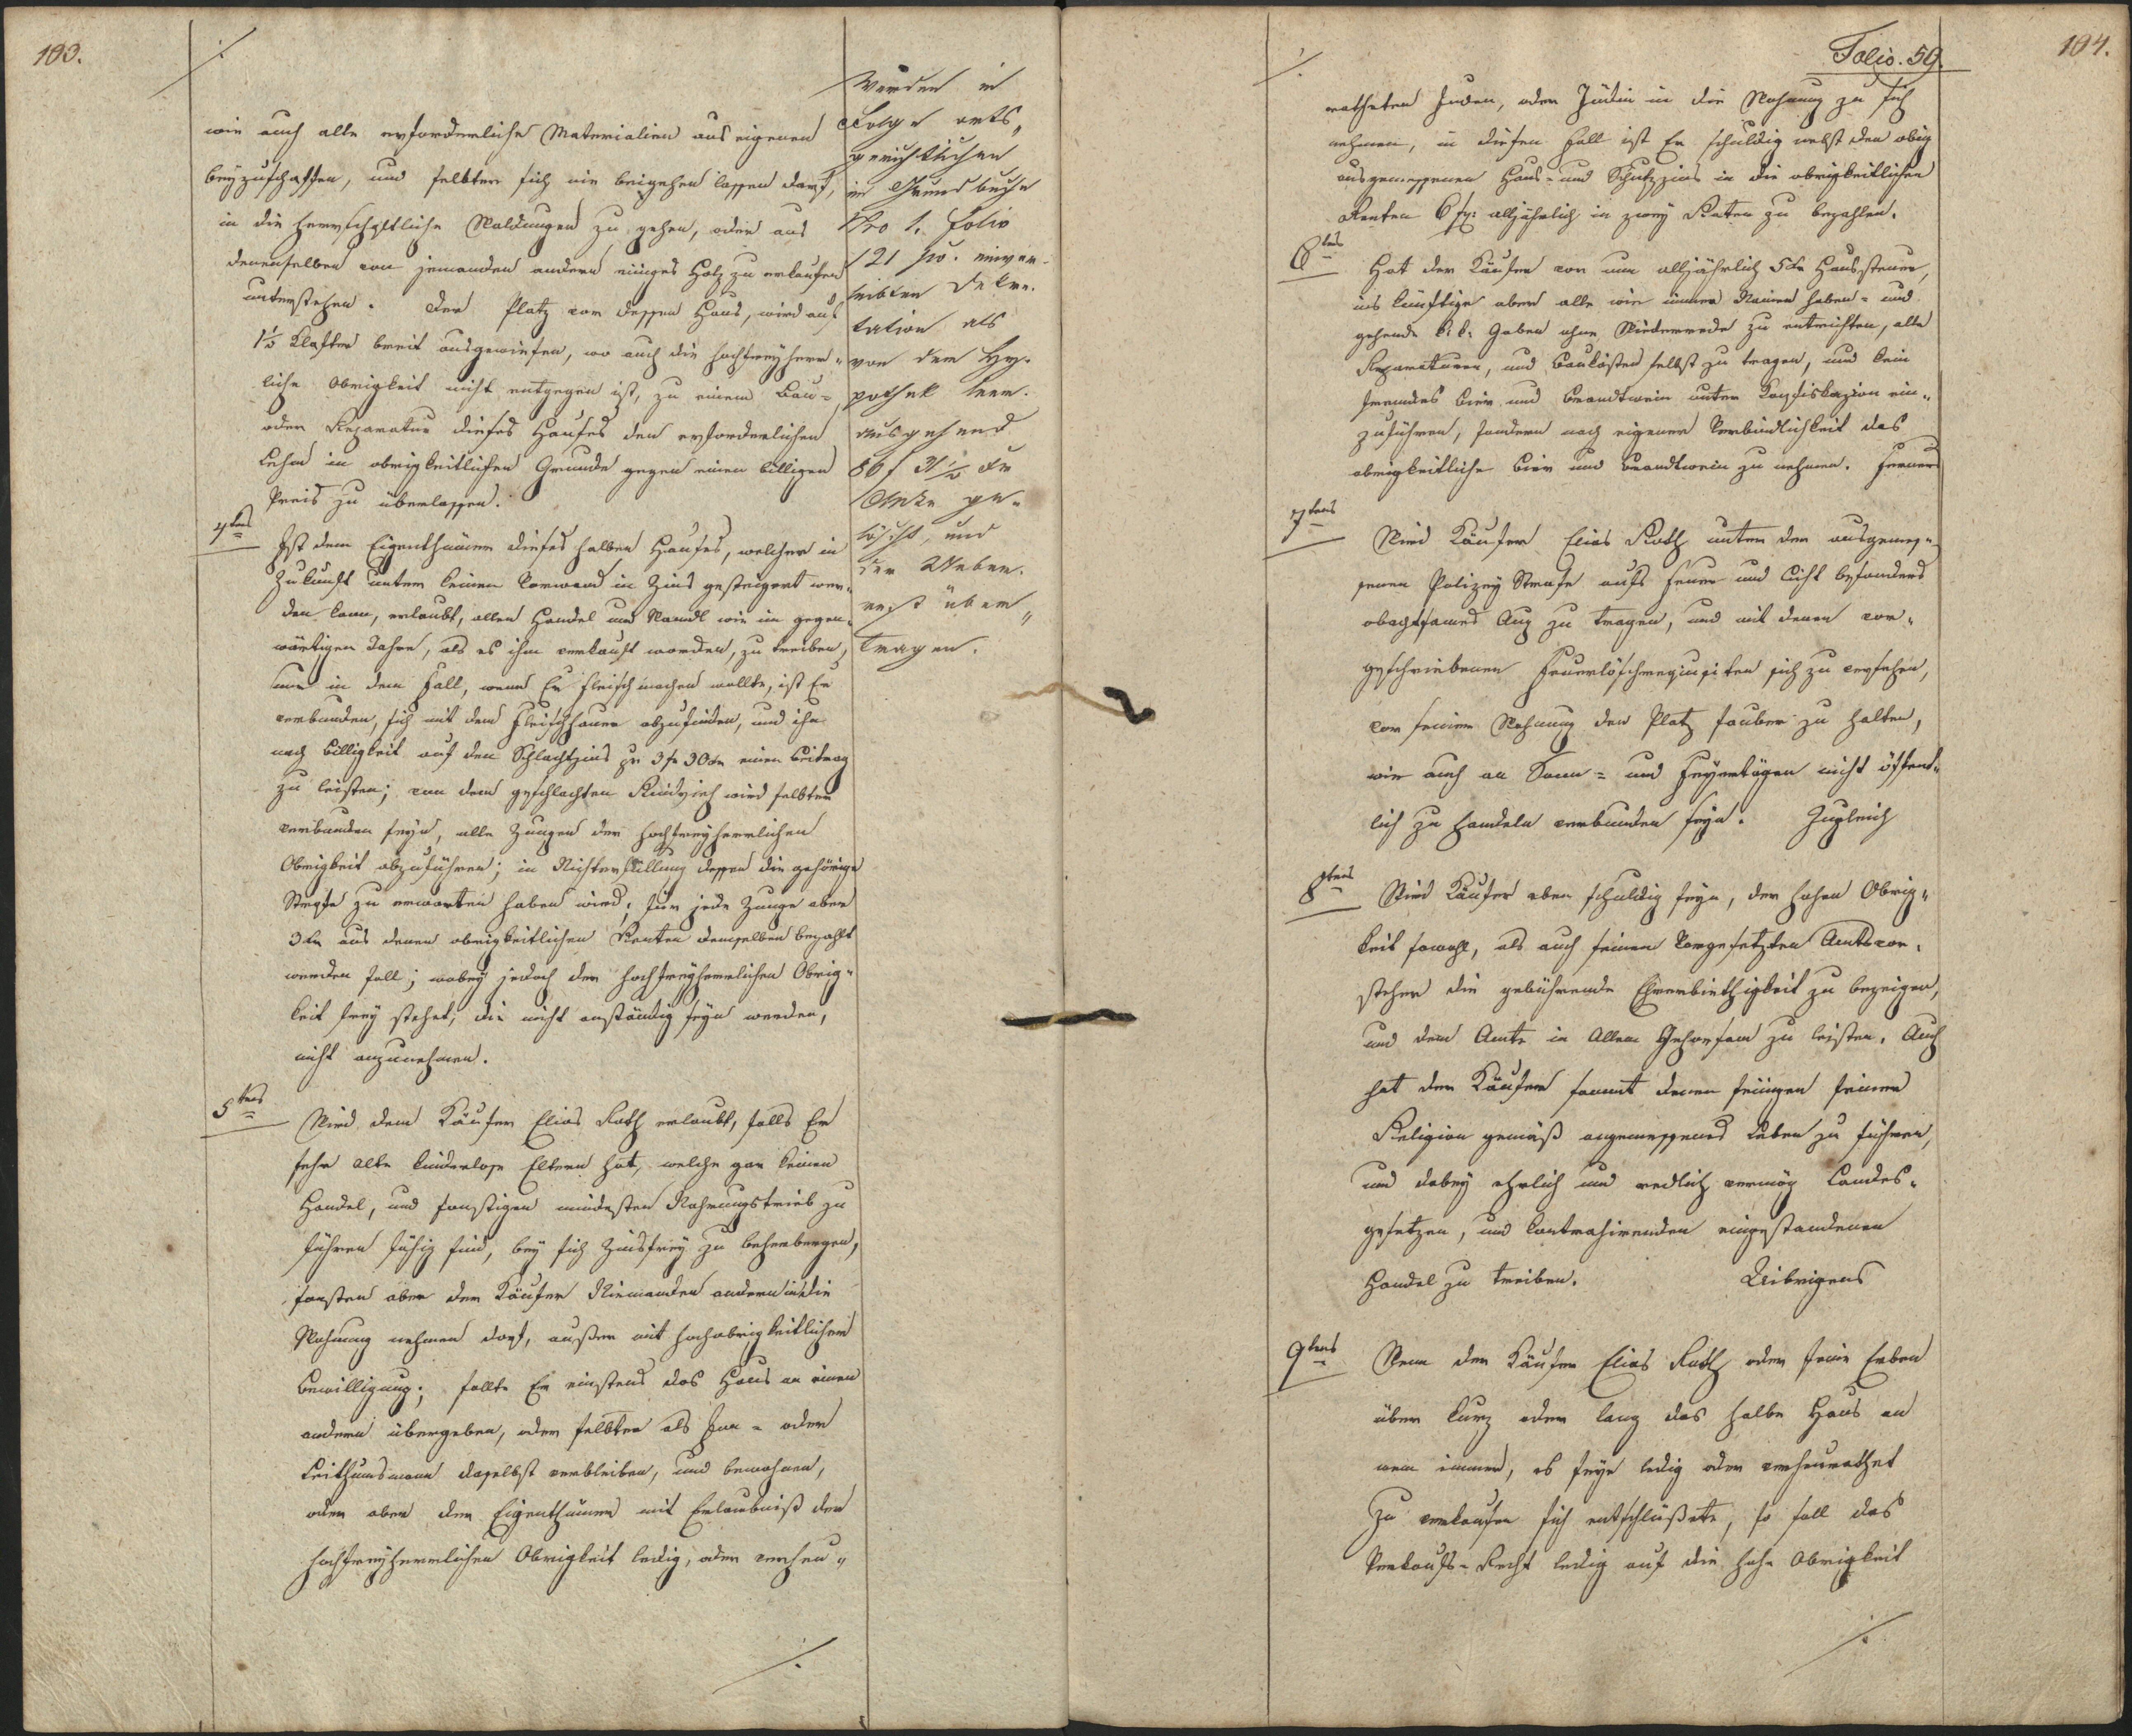 103.
./.
wie auch alle erforderliche Materialien aus eigenen
beyzuschaffen, und selbter sich nie beigehen lassen darf,
in die herrschaftliche Waldungen zu gehen, oder aus
denenselben von jemanden andern einiges Holz zu erkaufen
unterstehen. Der Platz vor dessen Haus, wird auf
1½ Klafter breit ausgewiesen, wo auch die hochfreyherr„
liche Obrigkeit nicht entgegen ist, zu einem Bau=
oder Reparatur dieses Hauses den erforderlichen
Lehm in obrigkeitlichen Grunde gegen einen billigen
Preis zu überlassen.
4tens
Ist dem Eigenthümer dieses halben Hauses, welcher in
Zukunft unter keinen Vorwand in Zins gesteigert wer„
den kann, erlaubt, allen Handel und Wandl wie im gegen„
wärtigen Jahre, als es ihm verkauft worden, zu treiben,
nur in dem Fall, wenn Er Fleisch machen wollte, ist Er
verbunden, sich mit dem Fleischhauer abzufinden, und ihm
nach Billigkeit auf den Schlachtzins zu 3 f 30 kr einen Beitrag
zu leisten; von dem geschlachten Rindvieh wird selbter
verbunden seyn, alle Zungen der hochfreyherrlichen
Obrigkeit abzuführen; in Nichterfüllung dessen die gehörige
Strafe zu erwarten haben wird; für jede Zunge aber
3 kr aus denen obrigkeitlichen Renten demselben bezahlt
werden soll; wobey jedoch der hochfreyherrlichen Obrig„
keit frey stehet, die nicht anständig seyn werden,
nicht anzunehmen.
5tens
Wird dem Käufer Elias Roth erlaubt, falls Er
sehr alte kinderlose Eltern hat, welche gar keinen
Handel, und sonstigen mindesten Nahrungstrieb zu
führen fähig sind, bey sich Zinsfrey zu beherbergen,
sonsten aber der Käufer Niemanden andern in die
Wohnung nehmen darf, außer mit hochobrigkeitlicher
Bewilligung; sollte Er einstens das Haus an einen
andern übergeben, oder selbter als Inn= oder
Leithumsmann daselbst verbleiben, und bewohnen,
oder aber der Eigenthümer mit Erlaubniß der
hochfreyherrlichen Obrigkeit ledig, oder verheu„
./.
Werden in
Folge orts„
gerichtlichen
im Grundbuche
Nro 1. Folio
121 einver„
leibten
tation als
von der Hy„
pothek leer„
ausgehend
86 f 31½ kr
ge„
löscht, und
der Ueber„
rest über„
tragen.
./.
Folio. 59.
104.
ratheten Juden, oder Jüdin in die Wohnung zu sich
nehmen, in diesen Fall ist Er schuldig nebst den obig
ausgemessenen Haus= und Schutzzins in die obrigkeitlichen
Renten 6 f alljährlich in zwey Raten zu bezahlen.
6tens
Hat der Käufer von nun alljährlich 5 kr Haussteuer,
ins künftige aber alle wie immer Namen haben= und
gehende k: k: Gaben ohne Wiederrede zu entrichten, alle
Reparaturen, und Baukösten selbst zu tragen, und kein
fremdes Bier und Brandtwein unter Konfiskazion ein„
zuführen, sondern nach eigener Verbindlichkeit das
obrigkeitliche Bier und Brandtwein zu nehmen. Ferners
7tens
Wird Käufer Elias Roth unter der ausgemes„
senen Polizey Strafe aufs Feuer und Licht besonders
obachtsames Aug zu tragen, und mit denen vor„
geschriebenen Feuerlöschrequisiten sich zu versehen,
vor seiner Wohnung den Platz sauber zu halten,
wie auch an Sonn= und Feyertägen nicht öffent„
lich zu handeln verbunden seyn. Zugleich
8tens
Wird Käufer eben schuldig seyn, der hohen Obrig„
keit sowohl, als auch seinen Vorgesetzten Amtsvor„
steher die gebührende Ehrerbiethigkeit zu bezeigen,
und dem Amte in Allem Gehorsam zu leisten. Auch
hat der Käufer sammt denen seinigen seiner
Religion gemäß angemessenes Leben zu führen,
und dabey ehrlich und redlich vermög Landes„
gesetzen, und kontrahirenden eingestandenen
Handel zu treiben. Uibrigens
9tens
Wenn der Käufer Elias Roth oder seine Erben
über kurz oder lang das halbe Haus an
wem immer, es seye ledig oder verheurathet
zu verkaufen sich entschlüßete, so soll das
Verkaufs=Recht ledig auf die hohe Obrigkeit
./.